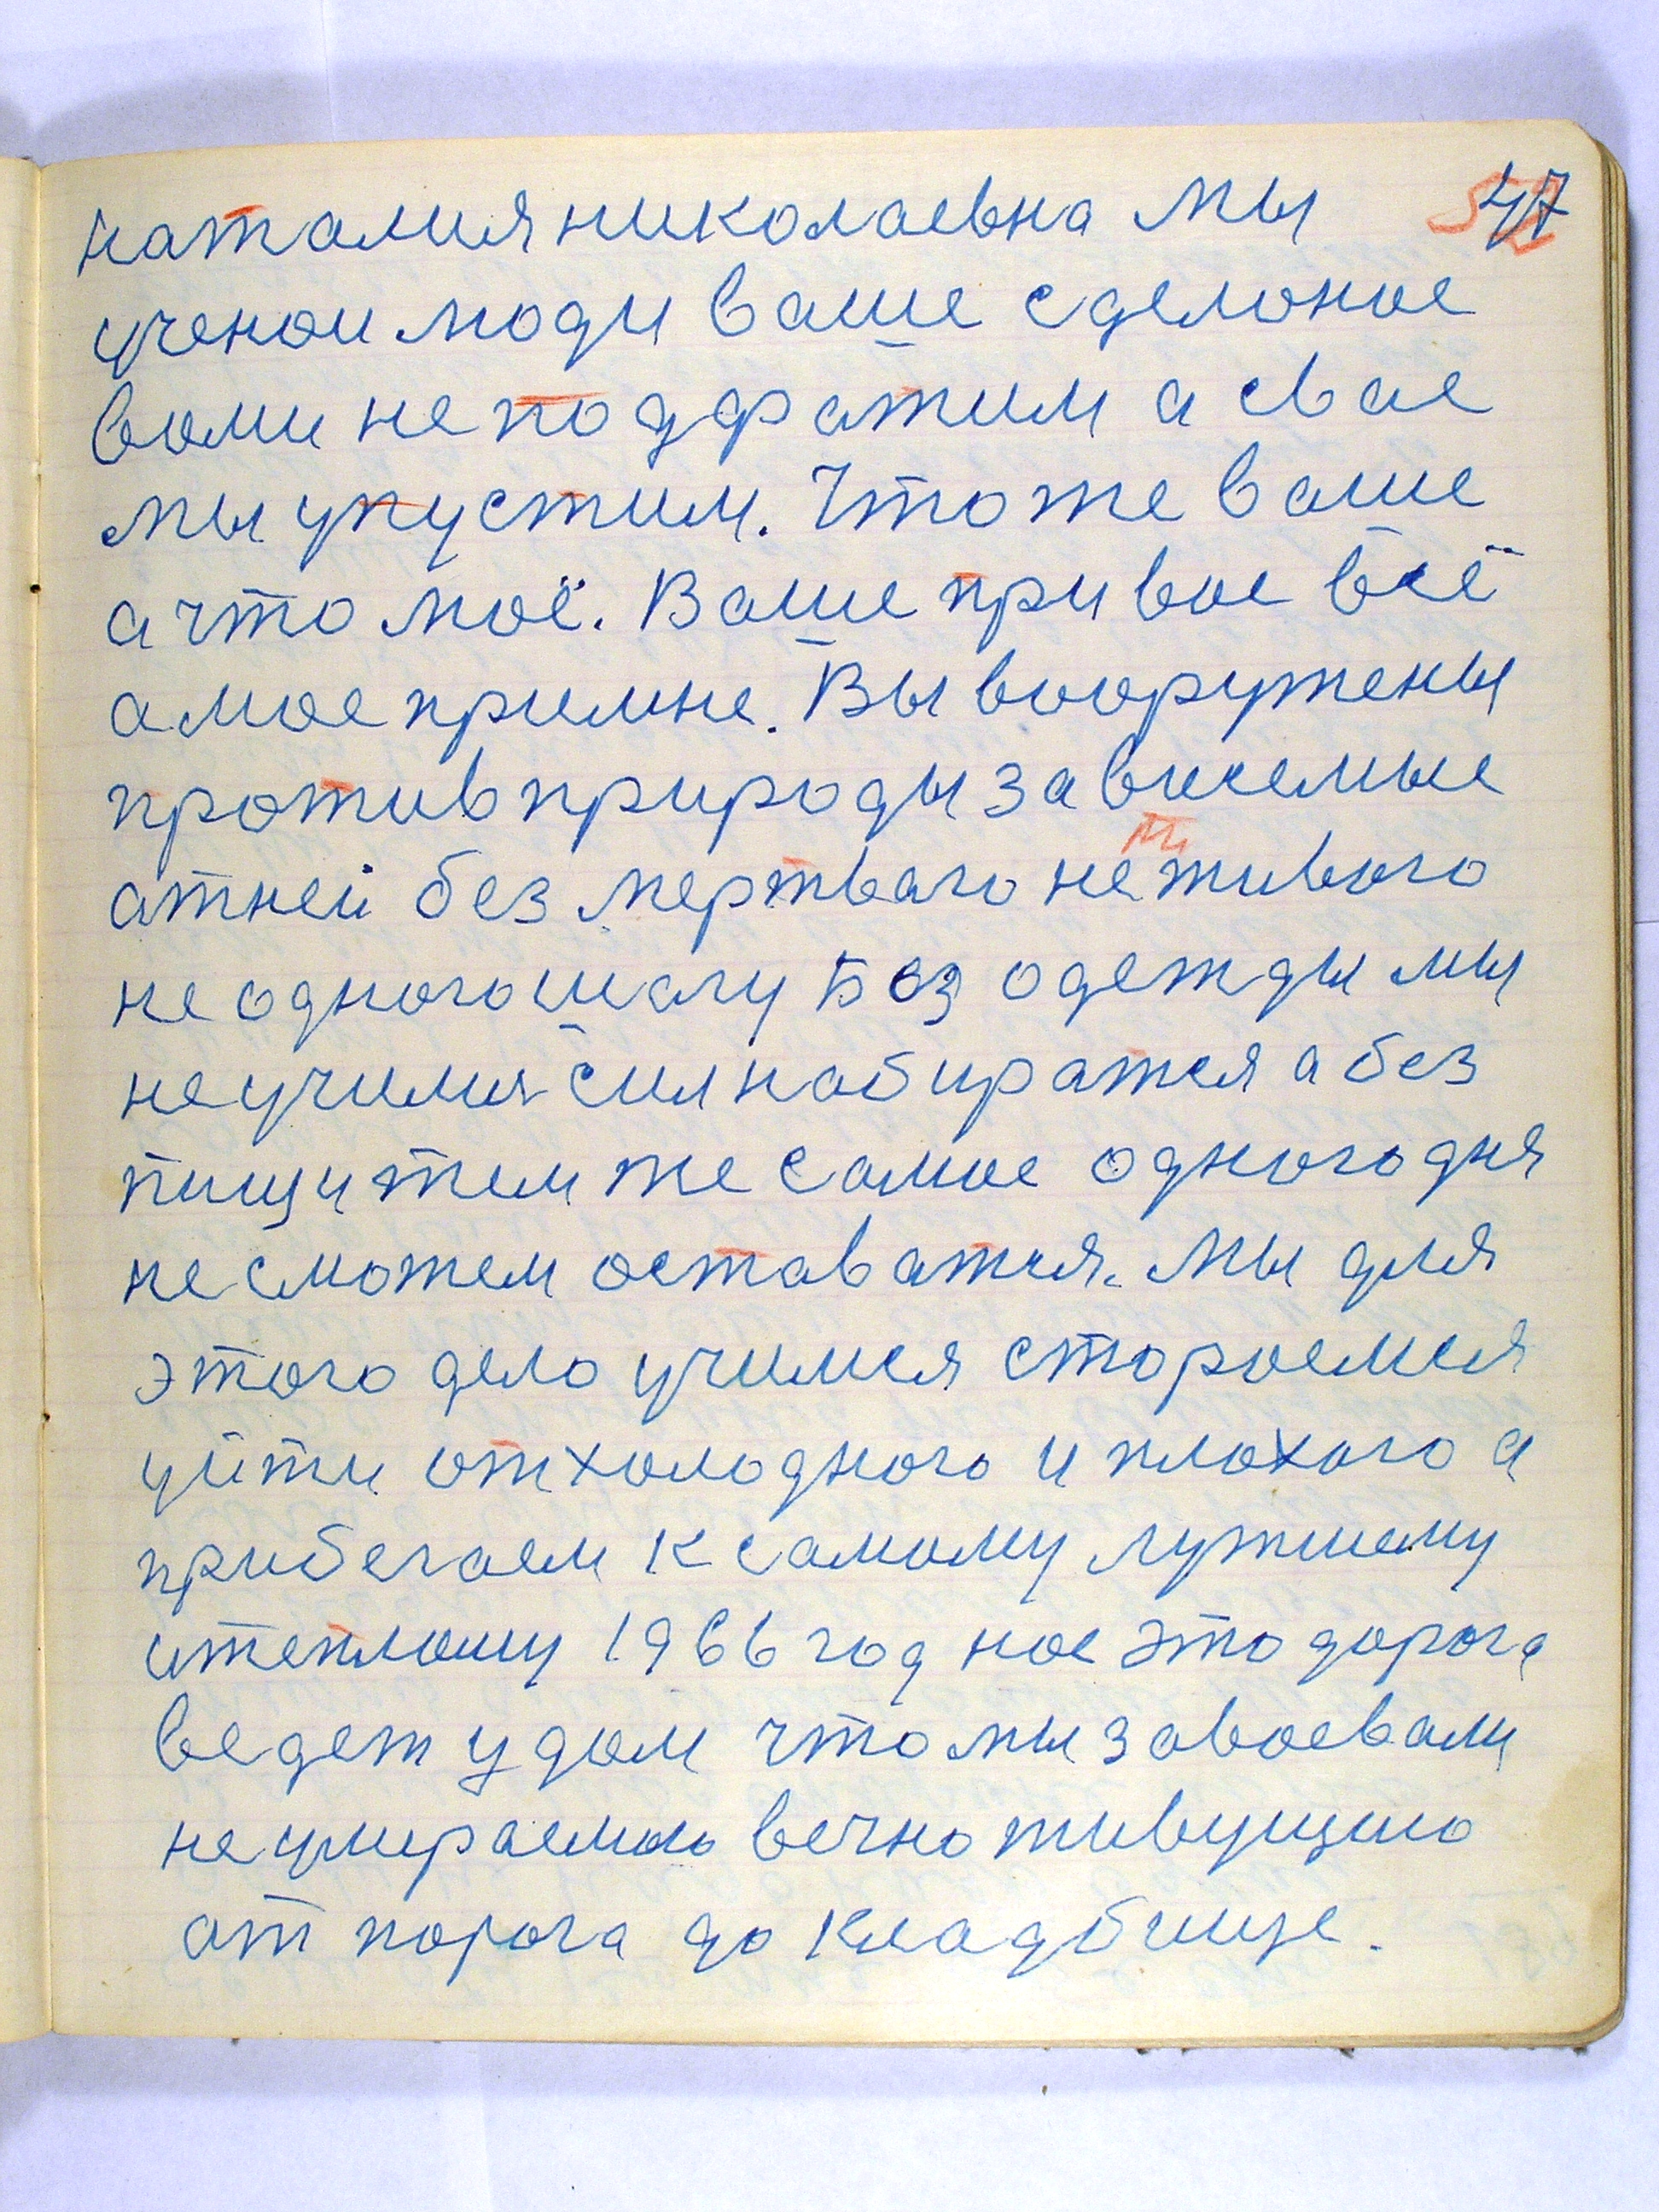 наталия николаевна мы 47
ученои люди ваше сделоное
вами не подфатим а свае
мы упустим. Что же ваше
а что моё. Ваше при вас всё
а мое при мне. Вы вооружены
против природы зависемые
атней без мертваго не живого
не одного шагу Без одежды мы
не учимся сил набиратся а без
пищи тем же самое одного дня
не сможем оставатся. Мы для
этого дело учимся стороемся
уйти от холодного и плохого а
прибегаем к самому лутшему
и теплому 1966 год нас это дорога
ведет у дом что мы завоевали
не умираемою вечно живущию
ат порога до кладбище.